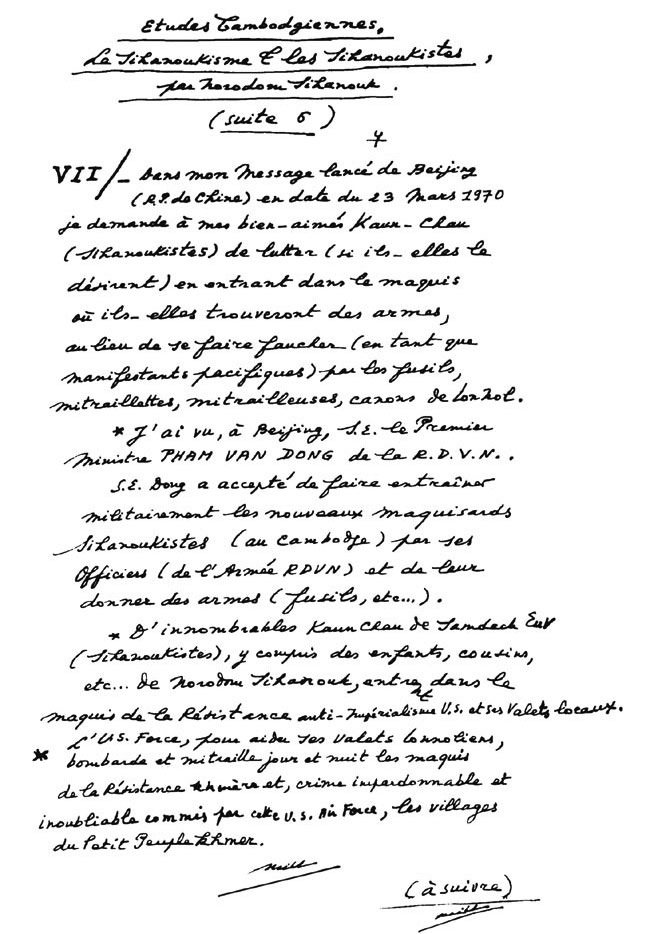 Etudes Cambodgiennes.
Le Sihanoukisme & les Sihanoukistes,
par Norodom Sihanouk.
(suite 6)
VII/_ Dans mon Message lancé de Beijing
(R.P. de Chine) en date du 23 Mars 1970
je demande à mes bien-aimés Kaun-Chau
(Sihanoukistes) de lutter (si ils-elles le
désirent) en entrant dans le maquis
où ils-elles trouveront des armes,
au lieu de se faire faucher (en tant que
manifestants pacifiques) par les fusils,
mitraillettes, mitrailleuses, canons de Lon Nol.
* J'ai vu, à Beijing, S.E. le Premier
Ministre PHAM VAN DONG de la R.D.V.N..
S.E. Dong a accepté de faire entraîner
militairement les nouveaux maquisards
Sihanoukistes (au Cambodge) par ses
Officiers (de l'Armée RDVN) et de leur
donner des armes (fusils, etc...).
* D'innombrables Kaun Chau de Samdech Euv
(Sihanoukistes), y compris des enfants, cousins,
etc... de Norodom Sihanouk, entrent dans le
maquis de la Résistance anti-Impérialisme U.S. et ses Valets locaux.
* L'US. Force, pour aider ses Valets lonnoliens,
bombarde et mitraille jour et nuit les maquis
de la Résistance khmère et, crime impardonnable et
inoubliable commis par cette U.S. Air Force, les villages
du Petit Peuple khmer.
(à suivre)